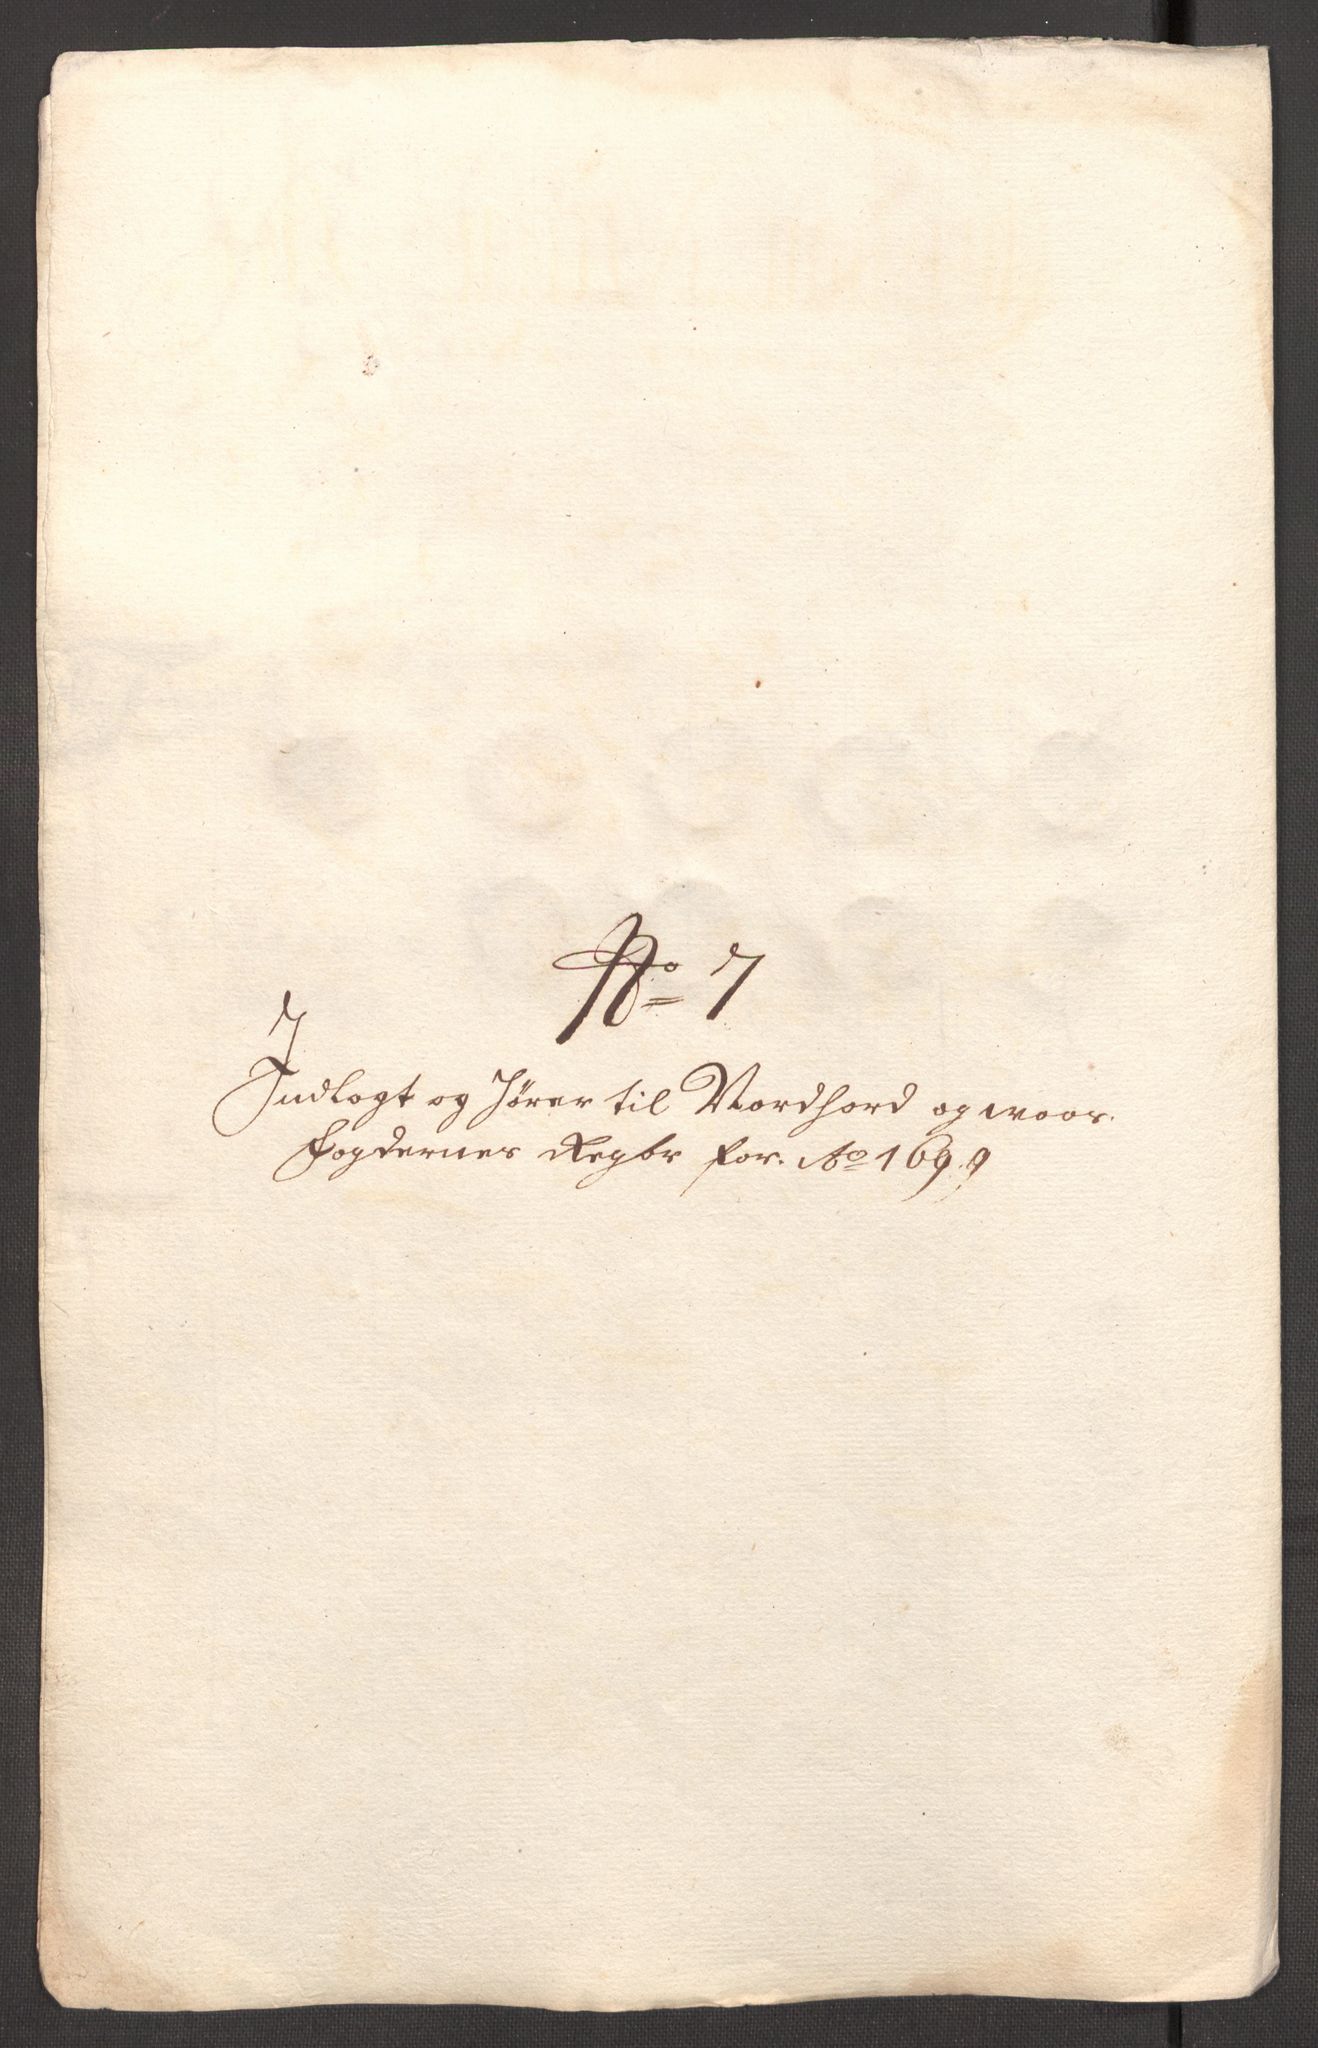 No 7
Indlagt og hører til Nordhord og woss.
Fogdernes Regbr for. Ao 1699